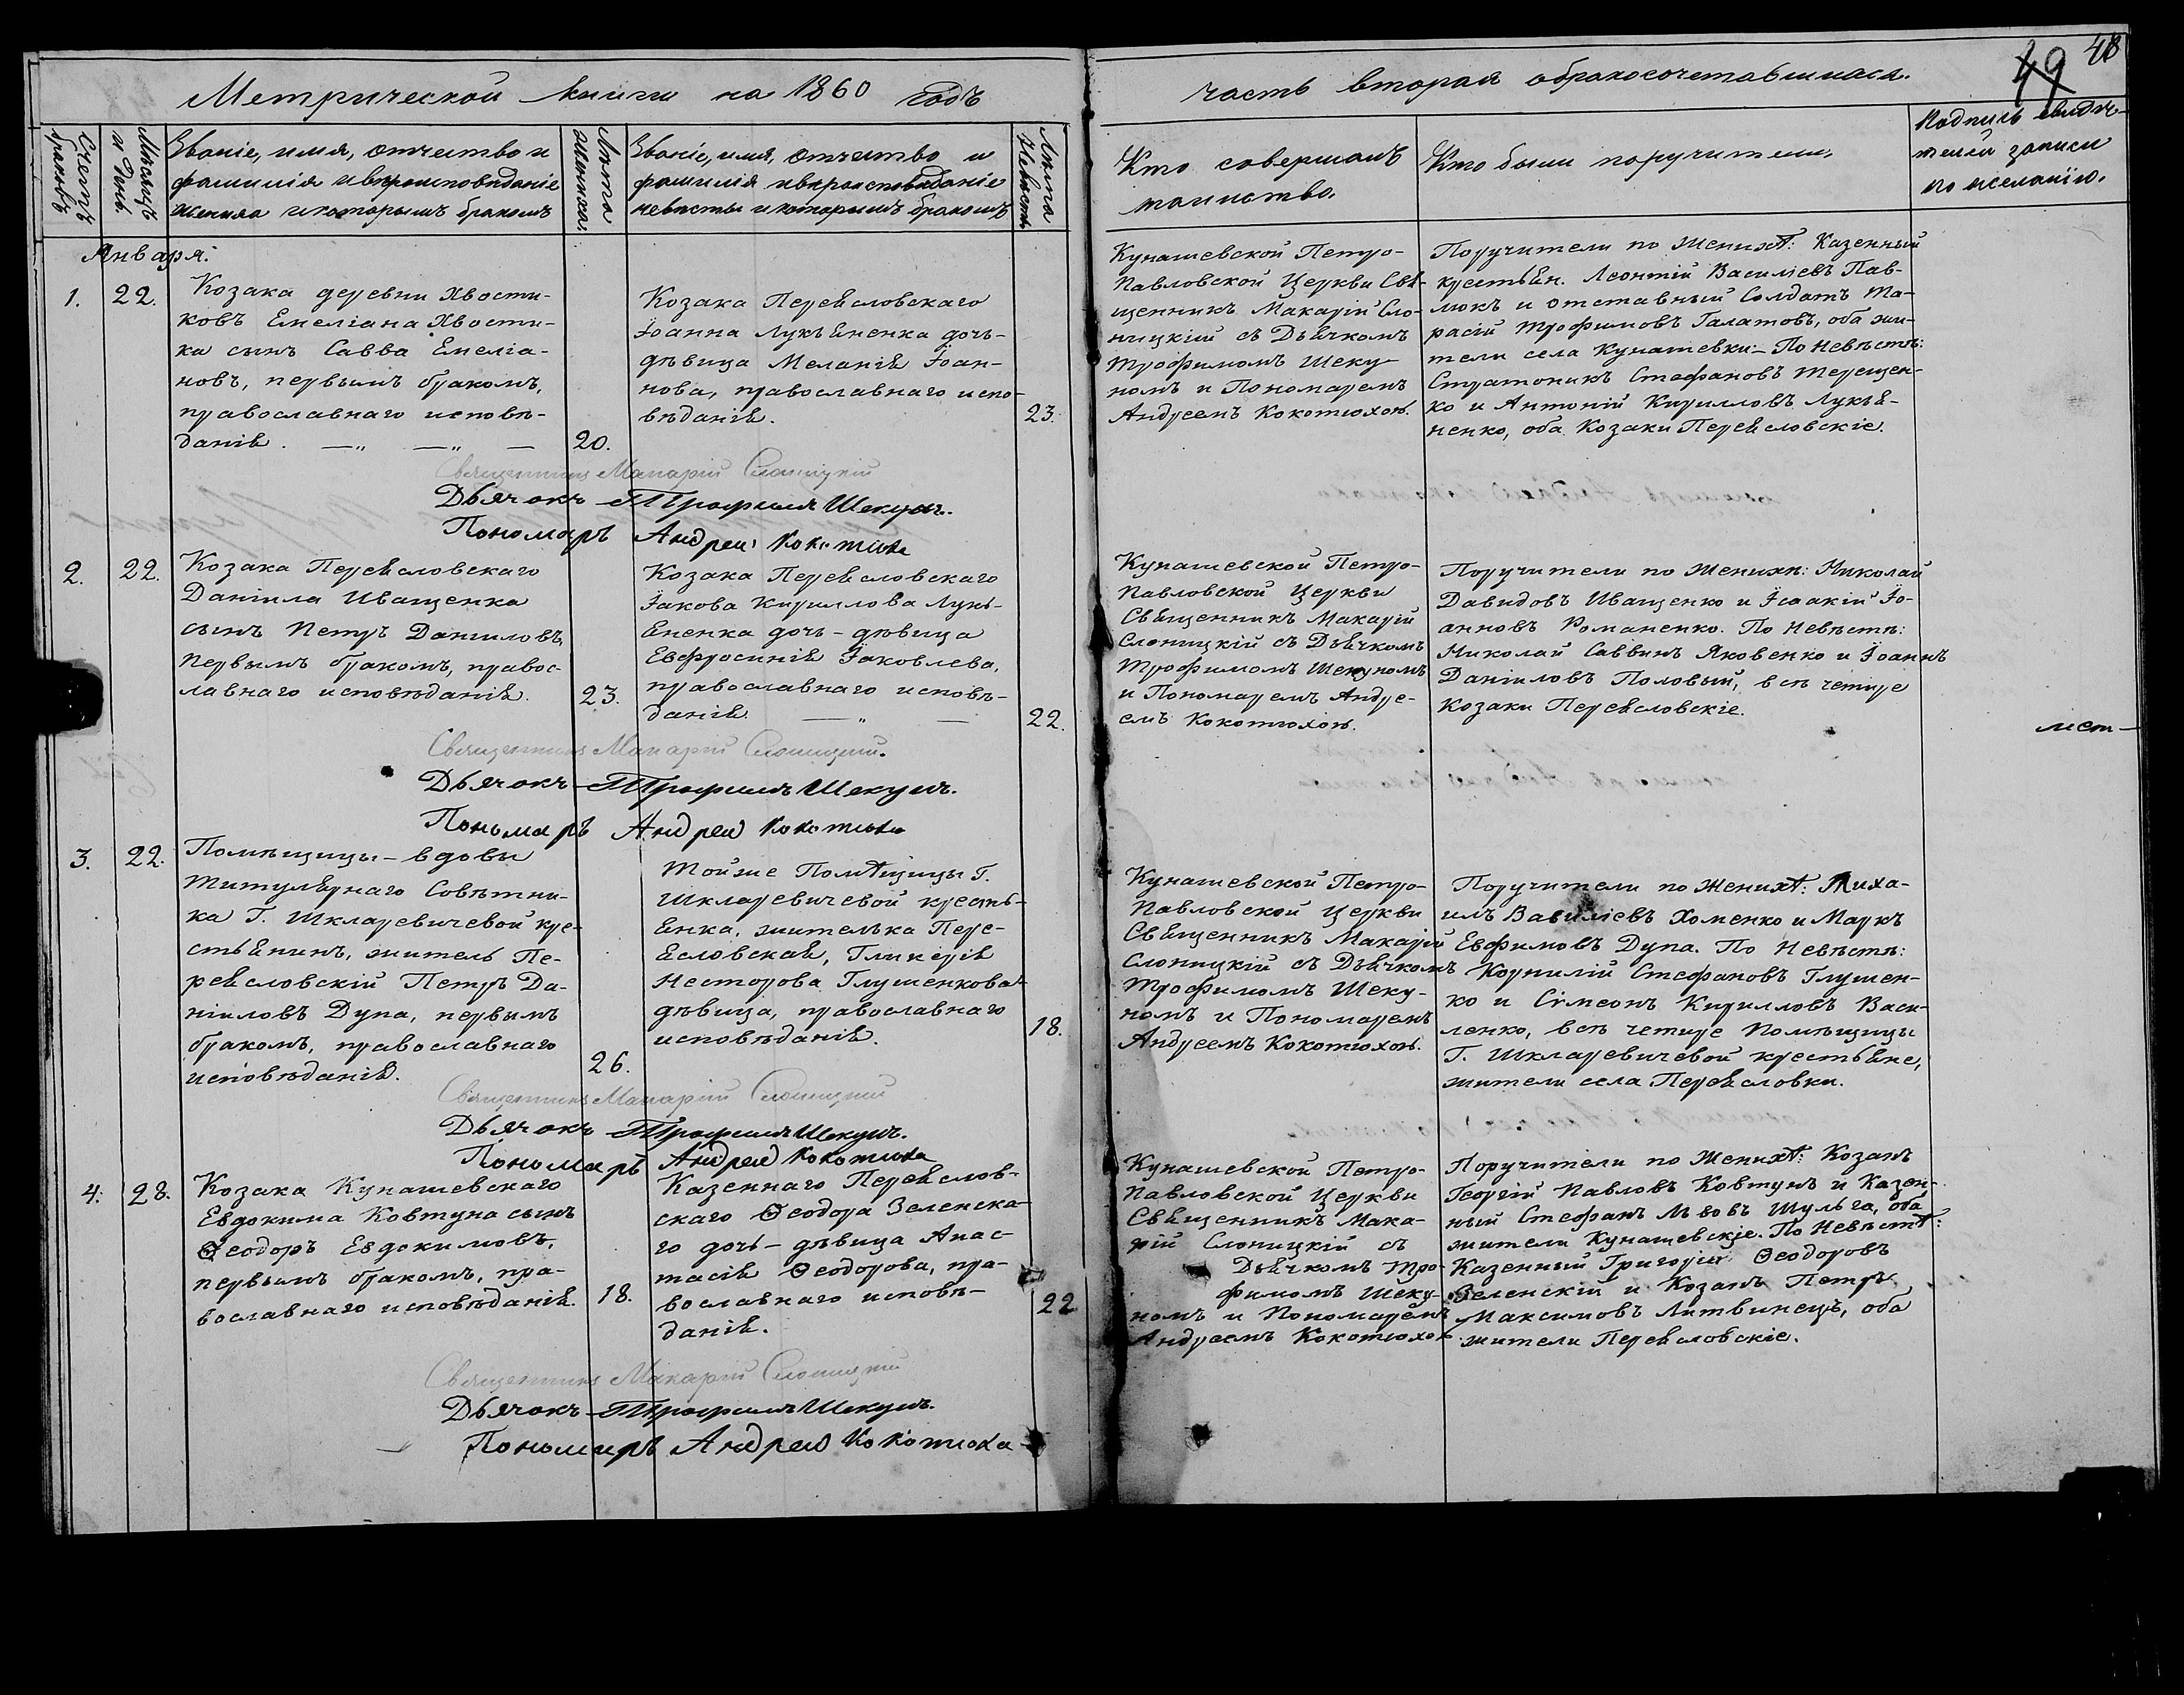 Метрической книги на 1860 годъ
часть вторая о бракосочетавшихся.
49 48
Счетъ браковъ
Мѣсяцъ и День.
Званіе, имя, отчество и
фамилія и вѣроисповѣданіе
жениха и которымъ бракомъ
Лѣта жениха.
Званіе, имя, отчество и
фамилія и вѣроисповѣданіе
невѣсты и которымъ бракомъ
Лѣта Невѣсты
Кто совершалъ
таинство.
Кто были поручители.
Подпись свидѣ-
телей записи
по желанію.
Января.
1. 22.
Козака деревни Хвости-
ковъ Емеліана Хвости-
ка сынъ Савва Емеліа-
новъ, первымъ бракомъ,
православнаго исповѣ-
данія. 20.
Козака Переясловскаго
Іоанна Лукьяненка дочь-
дѣвица Меланія Іоан-
нова, православнаго испо-
вѣданія. 23.
Кунашевской Петро-
Павловской Церкви Свя-
щенникъ Макарій Сло-
ницкій съ Дьячкомъ
Трофимомъ Шеку-
номъ и Пономаремъ
Андреемъ Кокотюхою.
Поручители по Женихѣ: Казенный
крестьян. Леонтій Василіевъ Пав-
люкъ и отставный Солдатъ Та-
расій Трофимовъ Галатовъ, оба жи-
тели села Кунашевки.- По Невѣстѣ:
Стратоникъ Стефановъ Терещен-
ко и Антоній Кирилловъ Лукья-
ненко, оба Козаки Переясловскіе.
Священникъ Макарій Слоницкій
Дьячокъ Трофимъ Шекунъ.
Пономарь Андрей Кокотюха
2. 22.
Козака Переясловскаго
Даніила Иващенка
сынъ Петръ Данииловъ,
первымъ бракомъ, правос-
лавнаго исповѣданія. 23.
Козака Переясловскаго
Іакова Кириллова Лукь-
яненка дочь-дѣвица
Евфросинія Іаковлева,
православнаго исповѣ-
данія. 22.
Кунашевской Петро-
Павловской Церкви
Священникъ Макарій
Слоницкій съ Дьячкомъ
Трофимомъ Шекуномъ
и Пономаремъ Андре-
емъ Кокотюхою.
Поручители по Женихѣ: Николай
Давидовъ Иващенко и Ісаакій Іо-
анновъ Романенко. По Невѣстѣ:
Николай Саввинъ Яковенко и Іоаннъ
Даніиловъ Половый, всѣ четире
Козаки Переясловскіе.
Священникъ Макарій Слоницкій.
Дьячокъ Трофимъ Шекунъ.
Пономарь Андрей Кокотюха
3. 22.
Помѣщицы-вдовы
Титулярнаго Совѣтни-
ка Г. Шкларевичевой кре-
стьянинъ, житель Пе-
реясловскій Петръ Да-
ніиловъ Дупа, первымъ
бракомъ, православнаго
исповѣданія. 26.
Тойже Помѣщицы Г.
Шкларевичевой кресть-
янка, жителька Пере-
ясловская, Гликерія
Несторова Глушенкова-
дѣвица, православнаго
исповѣданія. 18.
Кунашевской Петро-
Павловской Церкви
Священникъ Макарій
Слоницкій съ Дьячкомъ
Трофимомъ Шеку-
номъ и Пономаремъ
Андреемъ Кокотюхою.
Поручители по Женихѣ: Миха-
илъ Василіевъ Хоменко и Маркъ
Евфимовъ Дупа. По Невѣстѣ:
Корнилій Стефановъ Глушен-
ко и Сѵмеонъ Кирилловъ Васи-
ленко, всѣ четире Помѣщицы
Г. Шкларевичевой крестьяне,
жители села Переясловки.
Священникъ Макарій Слоницкій
Дьячокъ Трофимъ Шекунъ.
Пономарь Андрей Кокотюха
4. 28.
Козака Кунашевскаго
Евдокима Ковтуна сынъ
Ѳеодоръ Евдокимовъ,
первымъ бракомъ, пра-
вославнаго исповѣданія. 18.
Казеннаго Переяслов-
скаго Ѳеодора Зеленска-
го дочь-дѣвица Анас-
тасія Ѳеодорова, пра-
вославнаго исповѣ-
данія. 22
Кунашевской Петро-
Павловской Церкви
Священникъ Мака-
рій Слоницкій съ
Дьячкомъ Тро-
фимомъ Шеку-
номъ и Пономаремъ
Андреемъ Кокотюхою.
Поручители по Женихѣ: Козакъ
Георгій Павловъ Ковтунъ и Казен-
ный Стефанъ Львовъ Шульга, оба
жители Кунашевскіе. По Невѣстѣ:
Казенный Григорій Ѳеодоровъ
Зеленскій и Козакъ Петръ
Максимовъ Литвинецъ, оба
жители Переясловскіе.
Священникъ Макарій Слоницкій
Дьячокъ Трофимъ Шекунъ.
Пономарь Андрей Кокотюха